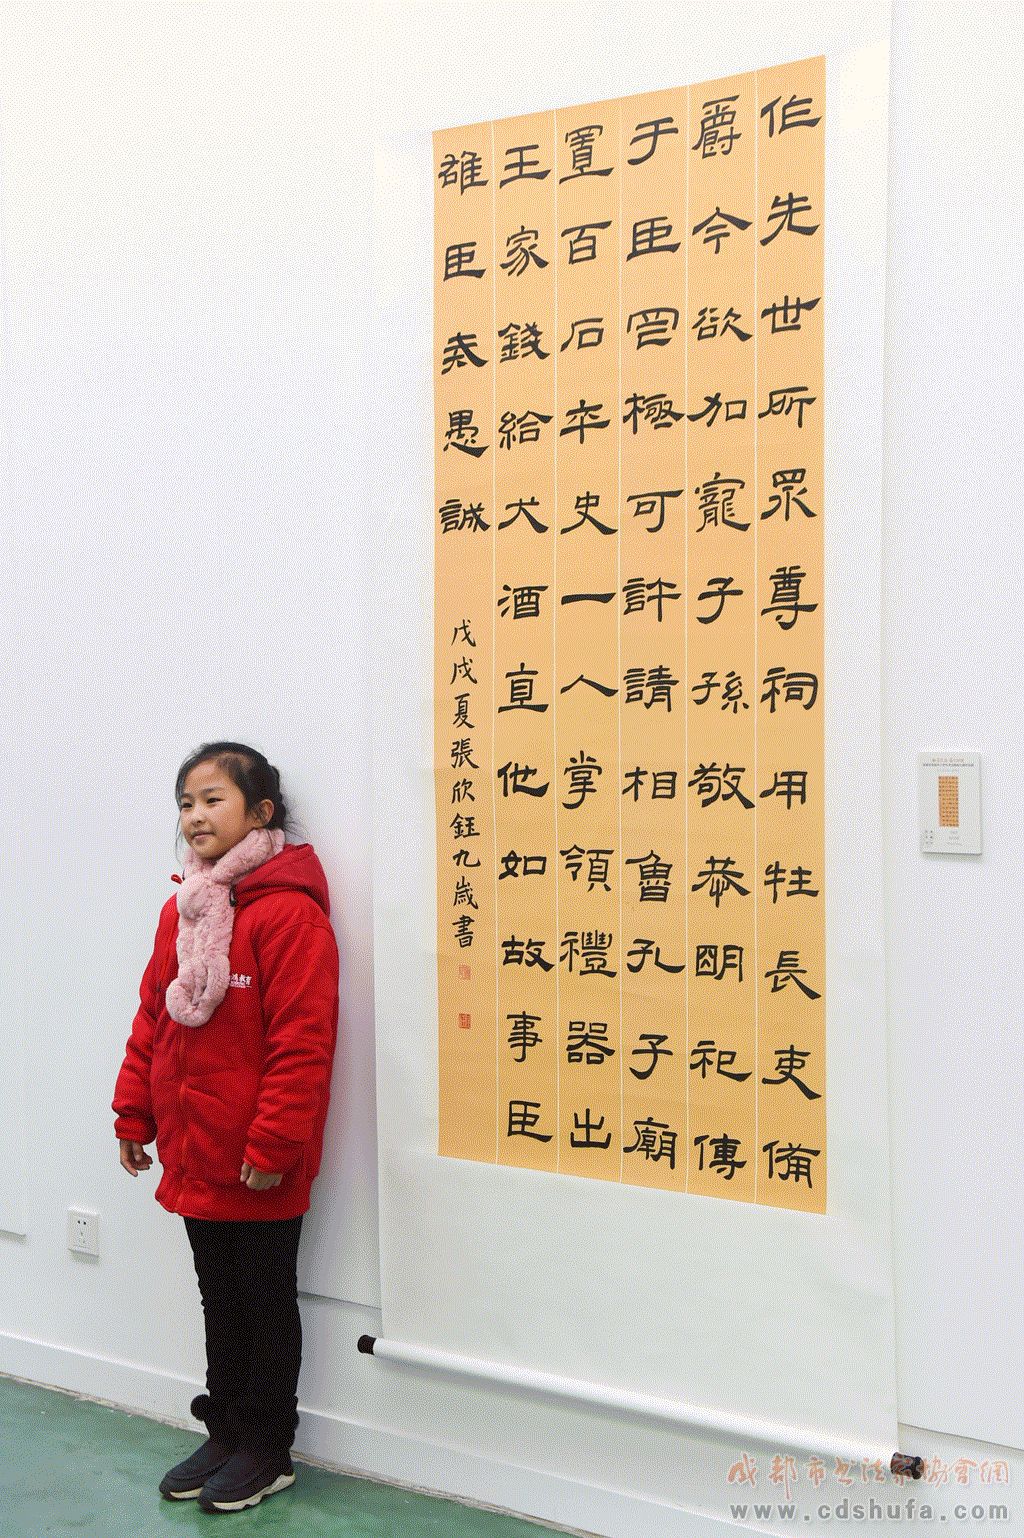 作先世所眾尊祠用牲長吏備
爵今欲加寵子孫敬恭明祀傳
于臣罔極可許請相魯孔子廟
置百石卒史一人掌領禮器出
王家錢給犬酒直他如故事臣
雄臣戒愚誠
戊戌夏張欣鈺九歲書
教育
成都市书法家協會網
www.cdshufa.com